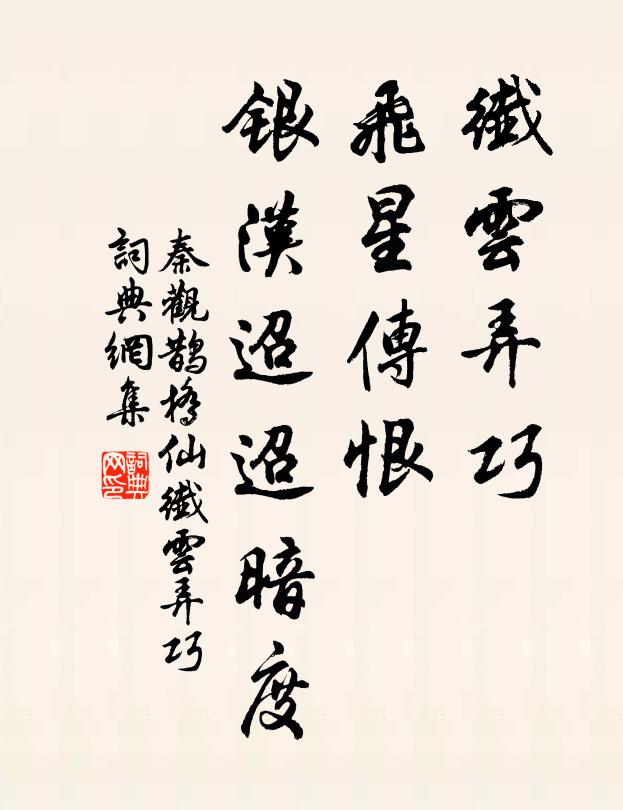 纖雲弄巧
飛星傳恨
銀漢迢迢暗度
秦觀鵲橋仙纖雲弄巧
詞典網集
詞典網印